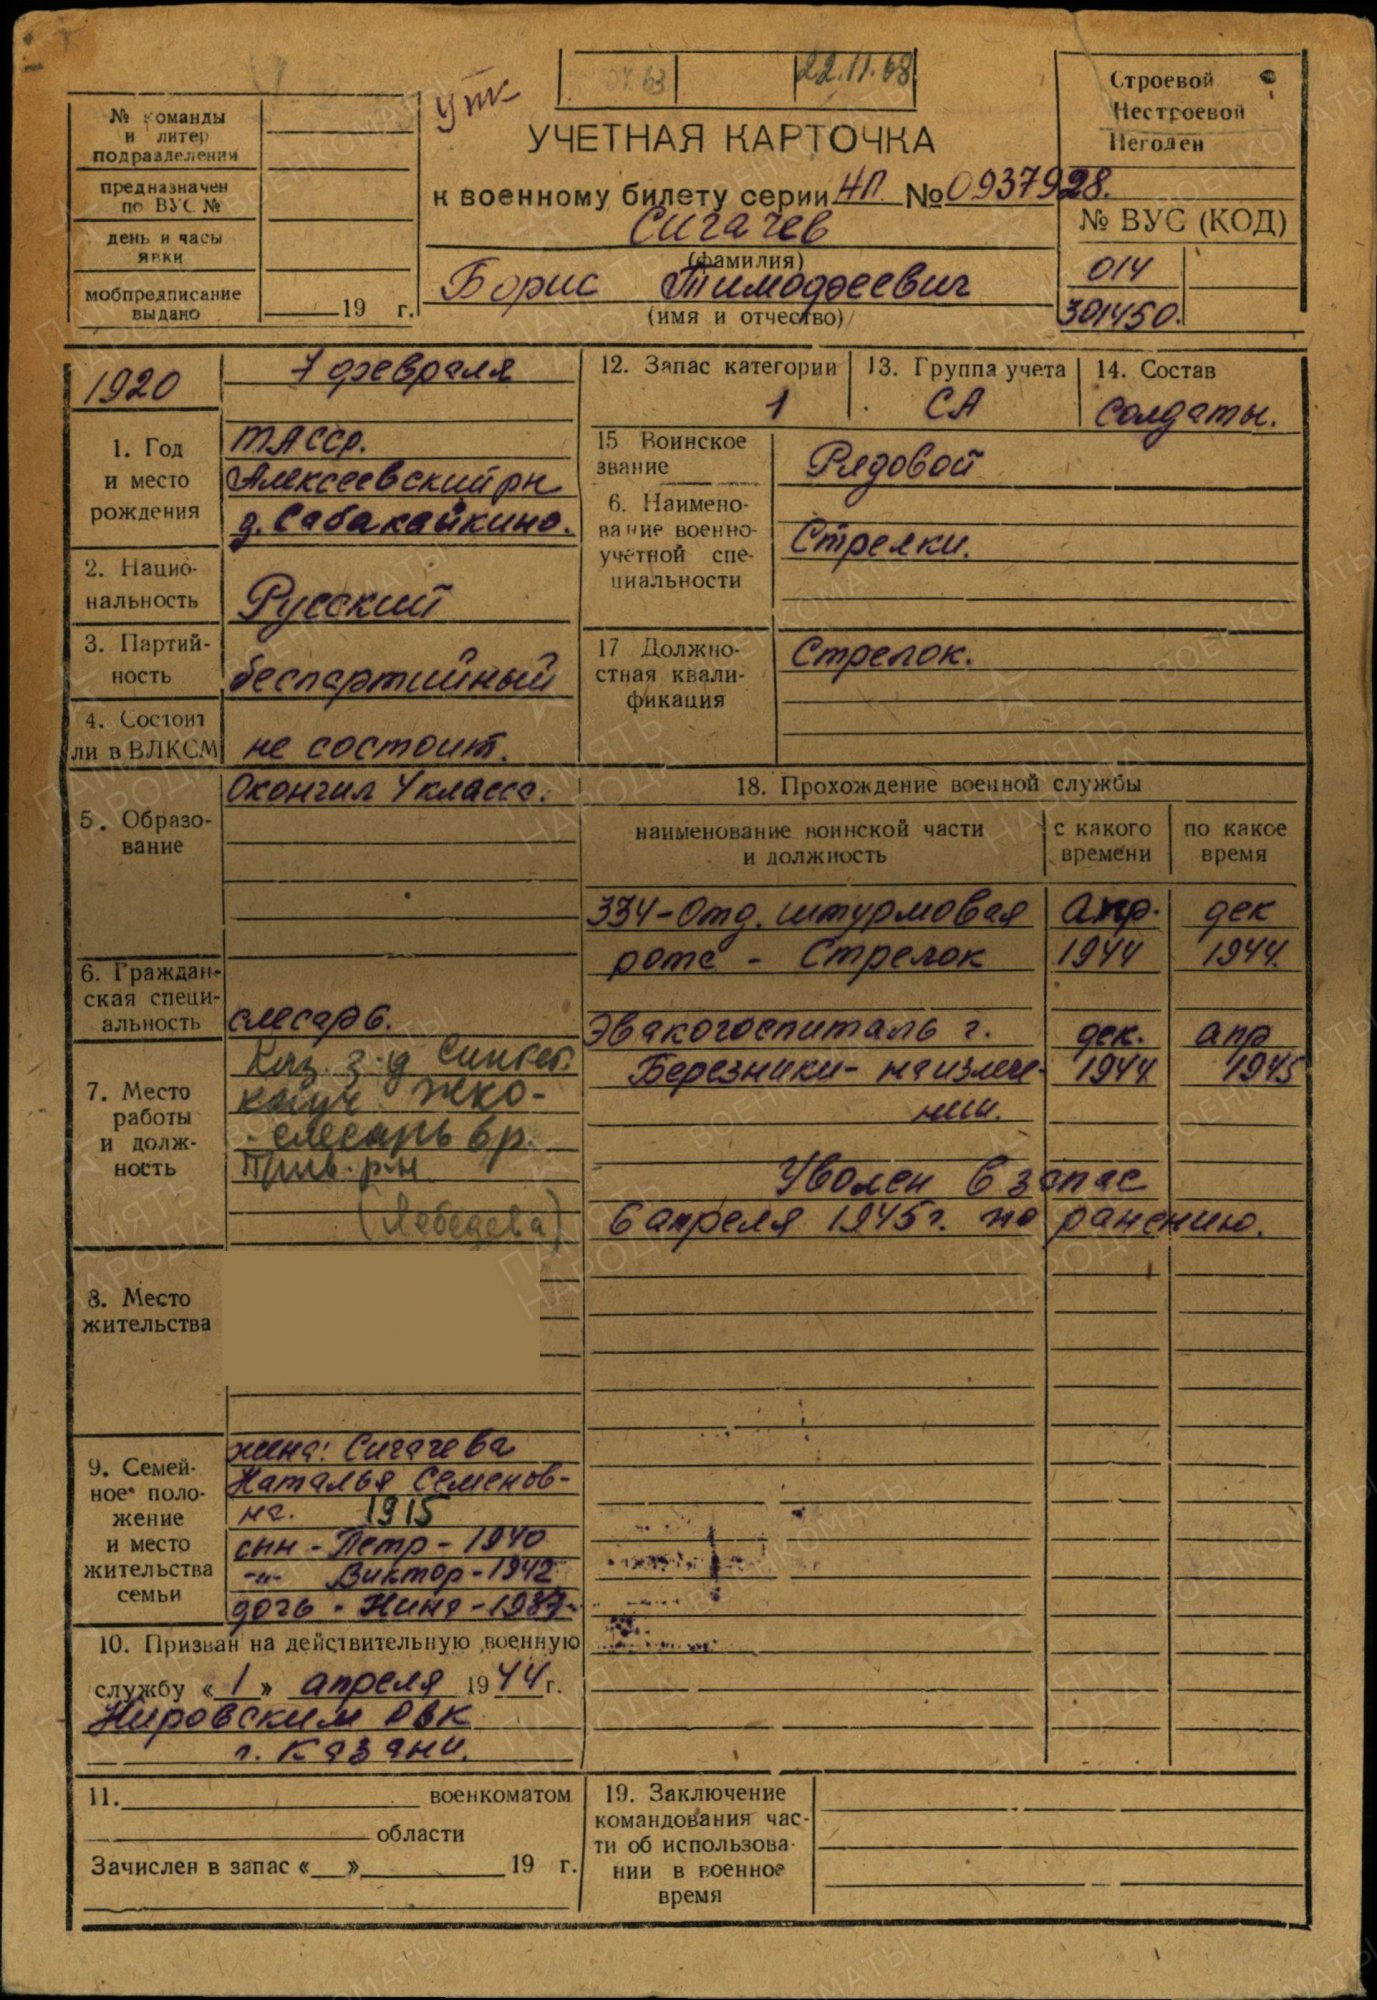 утк
22.11.68
Строевой
Нестроевой
Негоден
№ команды
и литер
подразделения
предназначен
по ВУС №
день и часы
явки
мобпредписание
выдано
19 г.
УЧЕТНАЯ КАРТОЧКА
к военному билету серии НП № 0937928.
Сигачев
(фамилия)
Борис Тимофеевич
(имя и отчество)
№ ВУС (КОД)
014
301450.
1920
7 февраля
1. Год
и место
рождения
ТАССР.
Алексеевский рн
д. Сабакайкино.
2. Нацио-
нальность
Русский
3. Партий-
ность
беспартийный
4. Состоит
ли в ВЛКСМ
не состоит.
5. Образо-
вание
Окончил 4 класса.
6. Граждан-
ская специ-
альность
слесарь.
7. Место
работы
и долж-
ность
Каз. з-д Синтет.
кауч ЖКО-
- слесарь 6 р.
Прив. р-н
(Лебедева)
8. Место
жительства
9. Семей-
ное поло-
жение
и место
жительства
семьи
жена: Сигачева
Наталья Семенов-
на. 1915
сын - Петр - 1940
-"- Виктор - 1942
дочь - Нина -
10. Призван на действительную военную
службу «1» апреля 1944 г.
Кировским РВК
г. Казани.
11. военкоматом
области
Зачислен в запас « » 19 г.
12. Запас категории
1
13. Группа учета
СА
14. Состав
Солдаты.
15 Воинское
звание
Рядовой
6. Наимено-
вание военно-
учетной спе-
циальности
Стрелки.
17 Должно-
стная квали-
фикация
Стрелок.
18. Прохождение военной службы
наименование воинской части
и должность
с какого
времени
по какое
время
334-Отд. штурмовая апр. дек
рота - Стрелок 1944 1944.
Эвакогоспиталь г. дек. апр
Березники - на излече- 1944 1945
нии.
Уволен в запас
6 апреля 1945 г. по ранению.
19. Заключение
командования час-
ти об использова-
нии в военное
время
ПАМЯТЬ
НАРОДА
ВОЕНКОМАТЫ